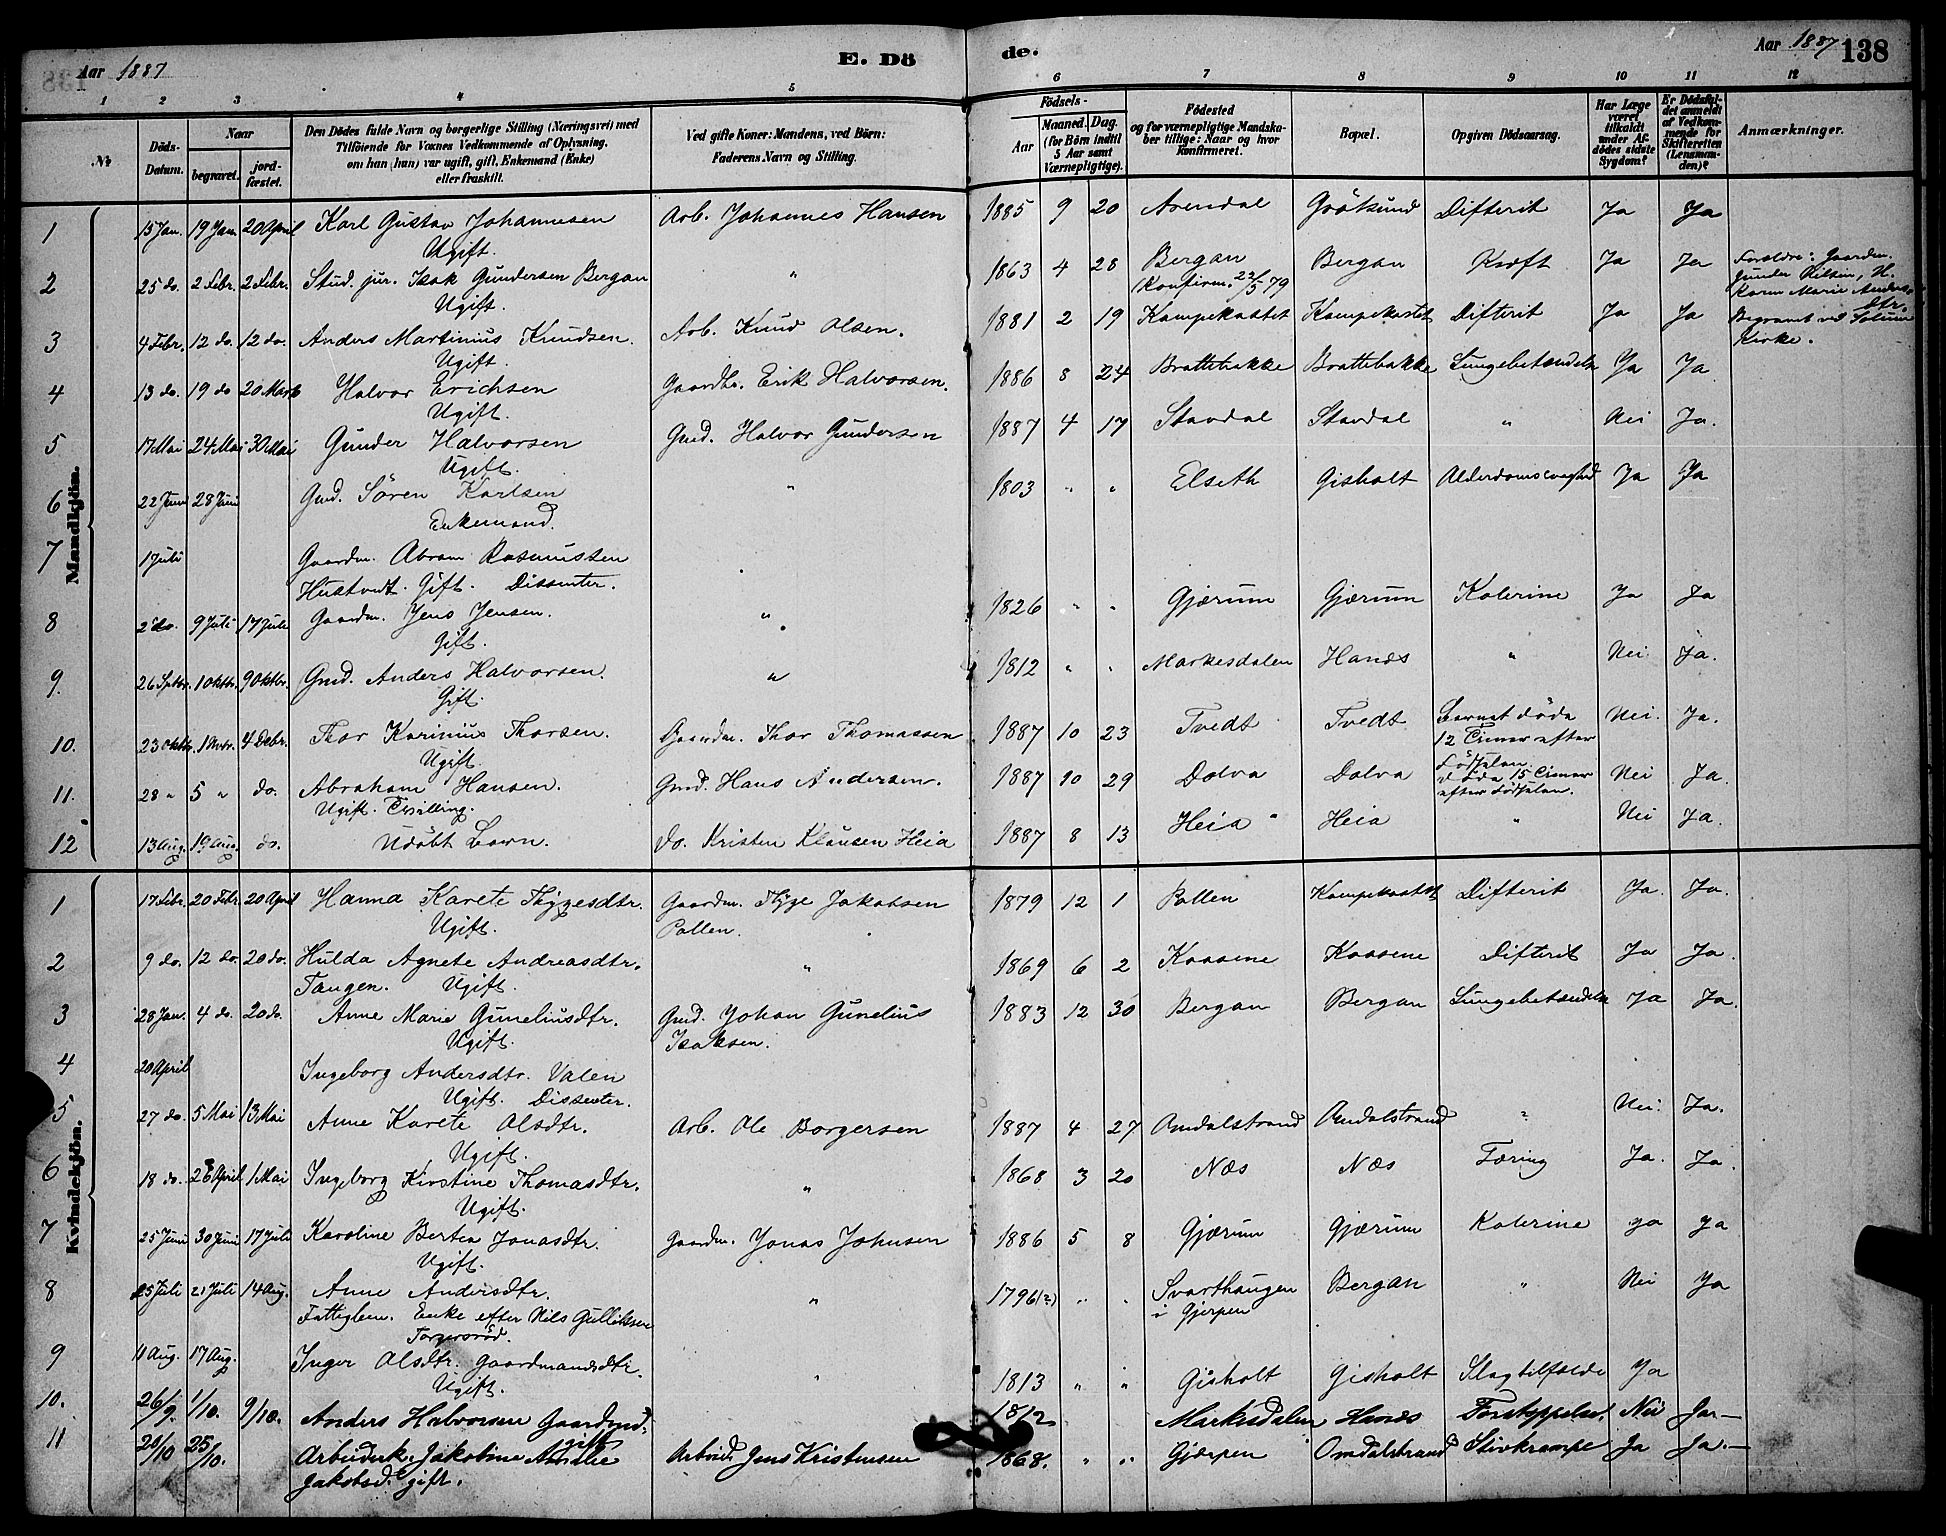 Aar 1887 E. Dö de. Aar 1887 138
1 2 3 4 5 6 7 8 9 10 11 12
№ Döds-Datum. Naar begravet. jordfæstet. Den Dödes fulde Navn og borgerlige Stilling (Næringsvei) med Tilföiende for Voxnes Vedkommende af Oplysning, om han (hun) var ugift, gift, Enkemand (Enke) eller fraskilt. Ved gifte Koner: Mandens, ved Börn: Faderens Navn og Stilling. Födsels- Aar Maaned. Dag. (for Börn indtil 5 Aar samt Værnepligtige). Födested og for værnepligtige Mandskaber tillige: Naar og hvor konfirmeret. Bopæl. Opgiven Dödsaarsag. Har Læge været tilkaldt under Afdödes sidste Sygdom? Er Dödsfaldet anmeldt af Vedkommende for Skifteretten (Lensmanden)? Anmærkninger.
Mandkjön.
1 15 Jan. 19 Jan. 20 April Karl Gustav Johannesen Ugift. Arb. Johannes Hansen 1885 9 20 Arendal Grötsund Difterit Ja Ja
2 25 do. 2 Febr. 2 Febr. Stud. jur. Isak Gundersen Bergan Ugift. " 1863 4 28 Bergan (Konfirm. 22/5 79 Bergan Kræft Ja Ja Forældre: Gaardm. Gunder Nilsen, H. Karen Marie Andersdtr. Begravet ved Solum Kirke.
3 4 Febr. 12 do. 12 do. Anders Martinius Knudsen. Ugift. Arb. Knud Olsen. 1881 2 19 Kampekastet Kampekastet Difterit Ja Ja
4 13 do. 19 do 20 Marts Halvor Erichsen Ugift. Gaardbr. Erik Halvorsen. 1886 8 24 Brattebakke Brattebakke Lungebetændelse Ja Ja.
5 17 Mai 24 Mai 30 Mai Gunder Halvorsen Ugift. Gmd. Halvor Gundersen 1887 4 17 Stavdal Stavdal " Nei Ja.
6 22 Juni 28 Juni Gmd. Sören Karlsen Enkemand. " 1803 " " Elseth Gisholt Alderdomssvaghed Ja Ja
7 1 Juli Gaardm. Abram Rasmussen Hustvedt. Gift. Dissenter.
8 2 do. 9 Juli 17 Juli Gaardm. Jens Jensen. Gift. " 1826 " " Gjærum Gjærum Kolerine Ja Ja
9. 26 Septbr. 1 Oktbr. 9 Oktbr. Gmd. Anders Halvorsen. Gift. " 1812 " " Markesdalen Hanæs " Nei Ja.
10. 23 Oktbr. 1 Nvbr. 4 Debr. Thor Karinius Thorsen. Ugift. Gaardm. Thor Thomassen 1887 10 23 Tvedt Tvedt Barnet døde 12 Timer efter Fødselen. Nei. Ja.
11. 28 " 5 " do. Abraham Hansen. Ugift. Tvilling. Gmd. Hans Andersen. 1887 10 29 Dolva Dolva døde 15 Timer efter Fødselen. Nei Ja.
12 13 Aug. 19 Aug. do. Udöbt Barn. do. Kristen Klausen Heia 1887 8 13 Heia " Heia " Nei Ja.
Kvindekjön.
1 17 Febr. 20 Febr. 20 April Hanna Karete Thygesdtr. Ugift. Gaardm. Thyge Jakobsen Pollen. 1879 12 1 Pollen Kampekastet Difterit Ja. Ja.
2 9 do. 12 do. 20 do. Hulda Agnete Andreasdtr. Tangen. Ugift. " 1869 6 2 Kaasene Kaasene Difterit Ja Ja.
3 28 Jan. 4 do. 20 do. Anne Marie Guneliusdtr. Ugift. Gmd. Johan Gunelius Isaksen. 1883 12 30 Bergan Bergan Lungebetændelse Ja Ja.
4 20 April Ingeborg Andersdtr. Valen Ugift. Dissenter.
5 27 do. 5 Mai 13 Mai Anne Karete Olsdtr. Ugift. Arb. Ole Borgersen 1887 4 27 Omdalstrand Omdalstrand " Nei. Ja.
6 18 do. 26 April 1 Mai Ingeborg Kirstine Thomasdtr. Ugift. " 1868 3 20 Næs Næs Tæring Ja. Ja.
7 25 Juni 30 Juni 17 Juli Karoline Bertea Jonasdtr. Ugift. Gaardm. Jonas Johnsen 1886 5 8 Gjærum Gjærum Kolerine Ja Ja
8 15 Juli 21 Juli 14 Aug. Anne Andersdtr. Fattiglem. Enke efter Nils Gulliksen Torgersrød. " 1796(?) " " Svarthaugen i Gjerpen Bergan " Nei Ja
9 11 Aug. 17 Aug. Inger Olsdtr. Gaardmandsdtr. Ugift. " 1813 " " Gisholt Gisholt Slagtilfælde Ja
10. 26/9. 1/10. 9/10. Anders Halvorsen Gaardmd. gift 1812 Markesdalen Hanæs Forstoppelse. Nei Ja.—
11 20/10 25/10. Arbeiderk. Jakobine Amalie Jakobsd. gift. Arbeid. Jens Kristensen 1868. " " Gjerpen Omdalstrand Stivkrampe Ja Ja.—